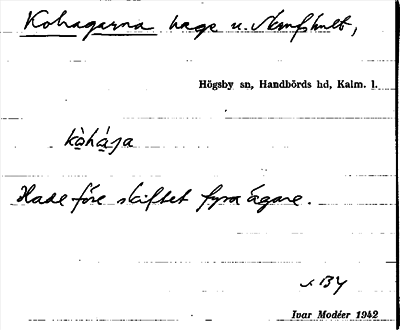 Kohagarna hage u. Stenshult,
Högsby sn, Handbörds hd, Kalm. l.
kòhága
Hade före skiftet fyra ägare.
Ivar Modéer 1942